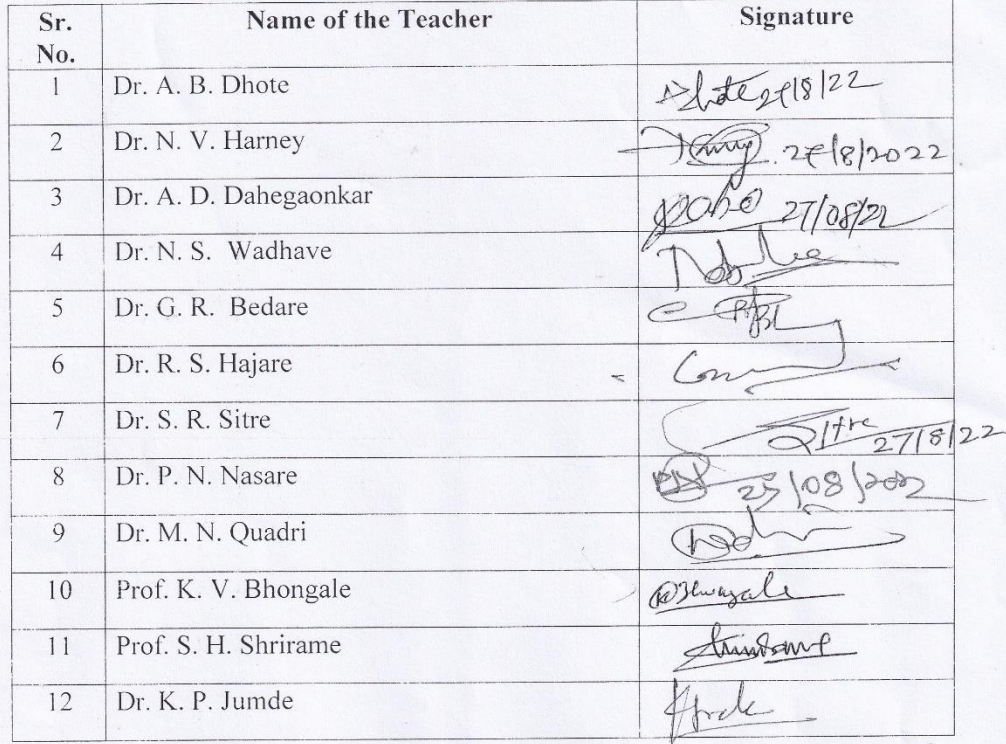 Sr. No. Name of the Teacher Signature
1 Dr. A. B. Dhote Dhote 27/8/22
2 Dr. N. V. Harney 27/8/2022
3 Dr. A. D. Dahegaonkar 27/08/22
4 Dr. N. S. Wadhave
5 Dr. G. R. Bedare
6 Dr. R. S. Hajare
7 Dr. S. R. Sitre Sitre 27/8/22
8 Dr. P. N. Nasare
9 Dr. M. N. Quadri
10 Prof. K. V. Bhongale
11 Prof. S. H. Shrirame
12 Dr. K. P. Jumde